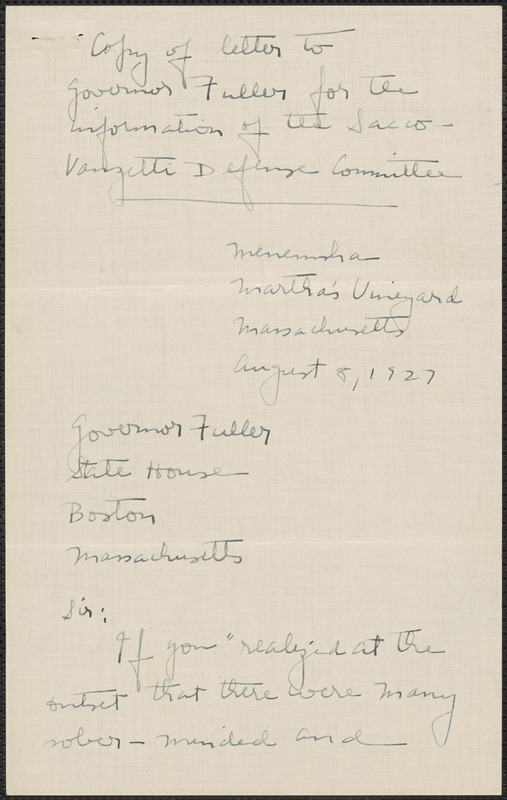 Copy of letter to
Governor Fuller for the
information of the Sacco-
Vanzetti Defense Committee
Menemsha
Martha's Vineyard
Massachusetts
August 8, 1927
Governor Fuller
State House
Boston
Massachusetts
Sir:
If you "realized at the
outset that there were many
sober-minded and